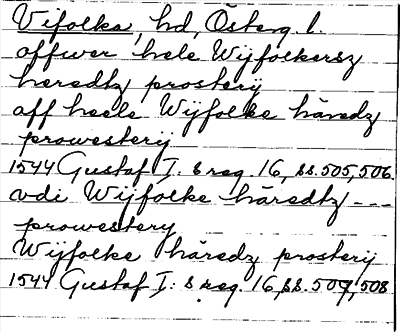 Vifolka, hd, Österg. l.
offwer hele Wijfolkersz
heredtz prosterij
aff heele Wijfolke häredz
prowesterij
1544 Gustaf I: s reg. 16, ss. 505, 506
vdi Wijfolke häredtz ---
prowestery
Wijfolke häredz prosterij
1544 Gustaf I: s reg. 16, ss. 507, 508